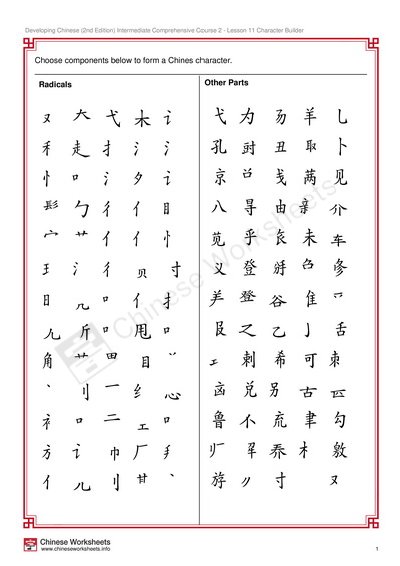 Developing Chinese (2nd Edition) Intermediate Comprehensive Course 2 - Lesson 11 Character Builder
Choose components below to form a Chines character.
Radicals Other Parts
又 弋 木 讠 弋 为 羊 乚
禾 走 扌 氵 氵 孔 尌 丑 取 卜
忄 口 氵 夕 讠 京 㕣 戋 㒼 见
髟 勹 彳 亻 目 八 寻 由 亲 介
宀 艹 亻 亻 忄 苋 乎 未 车
王 氵 彳 贝 寸 义 登
日 几 口 亻 扌 登 谷 隹
儿 斤 口 甩 口 之 乙 亅 舌
角 艹 目 丷 刺 希 可
丶 刂 一 纟 心 兑 另 古
衤 口 二 工 口 鲁 不 㐬 聿 勾
方 讠 巾 厂 木 敫
亻 儿 刂 甘 丶 斿 寸 又
Chinese Worksheets
Chinese Worksheets
www.chineseworksheets.info
1